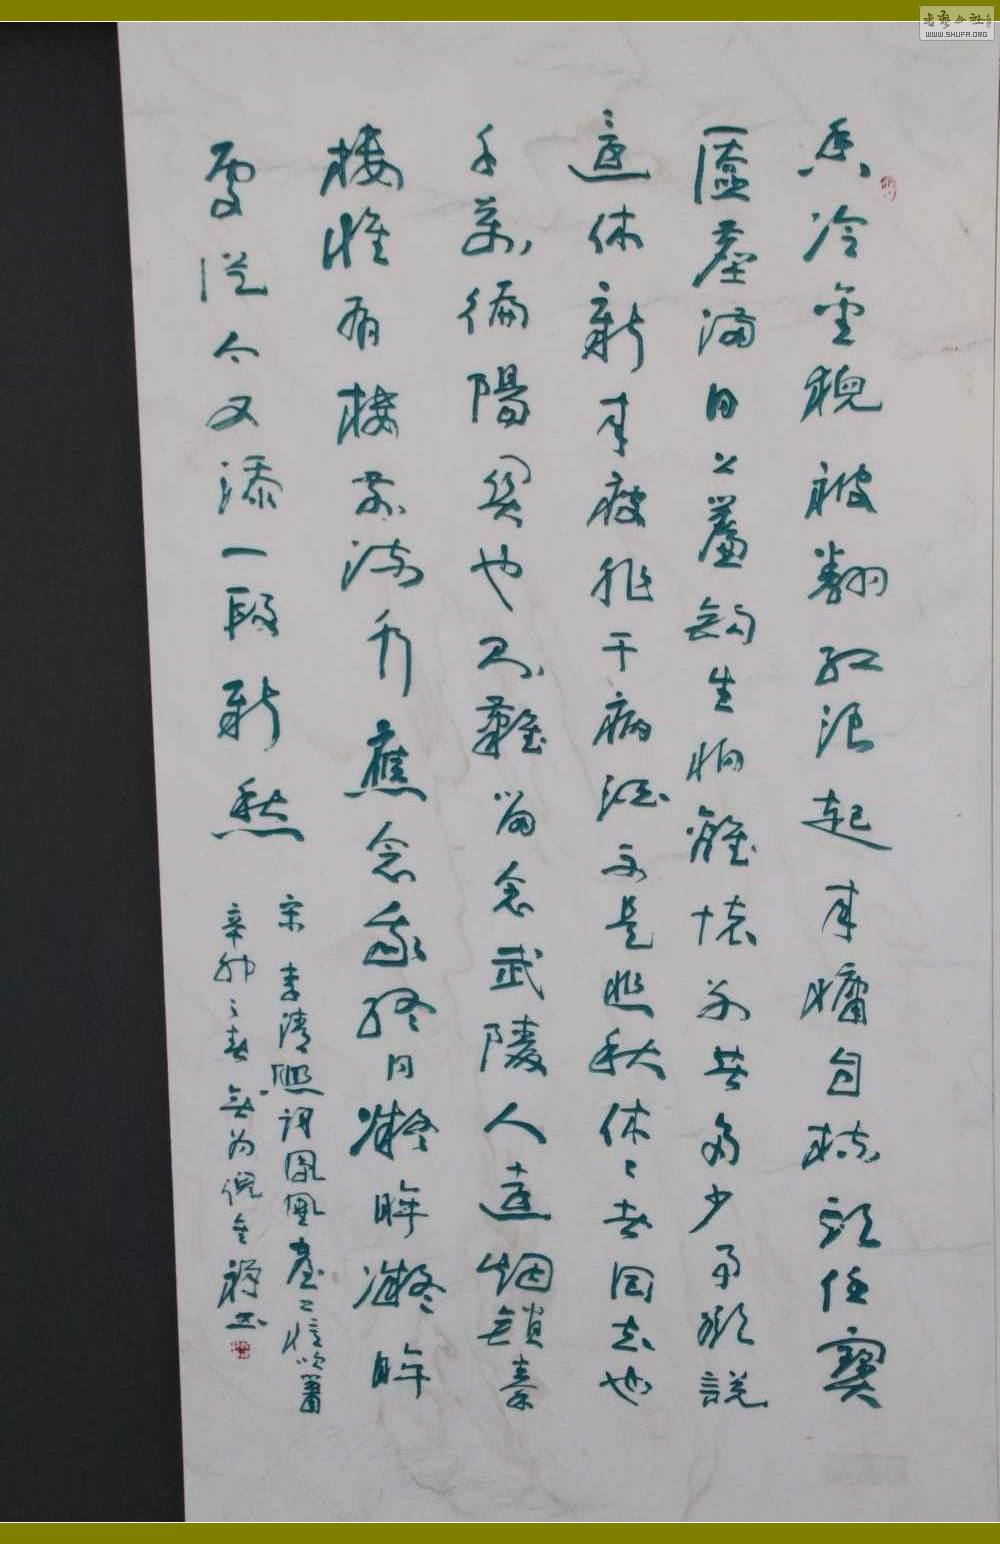 香冷金猊被翻紅浪起來慵自梳頭任寶
匳塵滿日上簾鉤生怕離懷別苦多少事欲說
還休新來瘦非干病酒不是悲秋休々者回去也
千萬徧陽關也則難留念武陵人遠烟鎖秦
樓惟有樓前流水應念我終日凝眸凝眸
處從今又添一段新愁
宋 李清照詞鳳凰臺上憶吹簫
辛卯之春無为倪金書
书艺公社
WWW.SHUFA.ORG